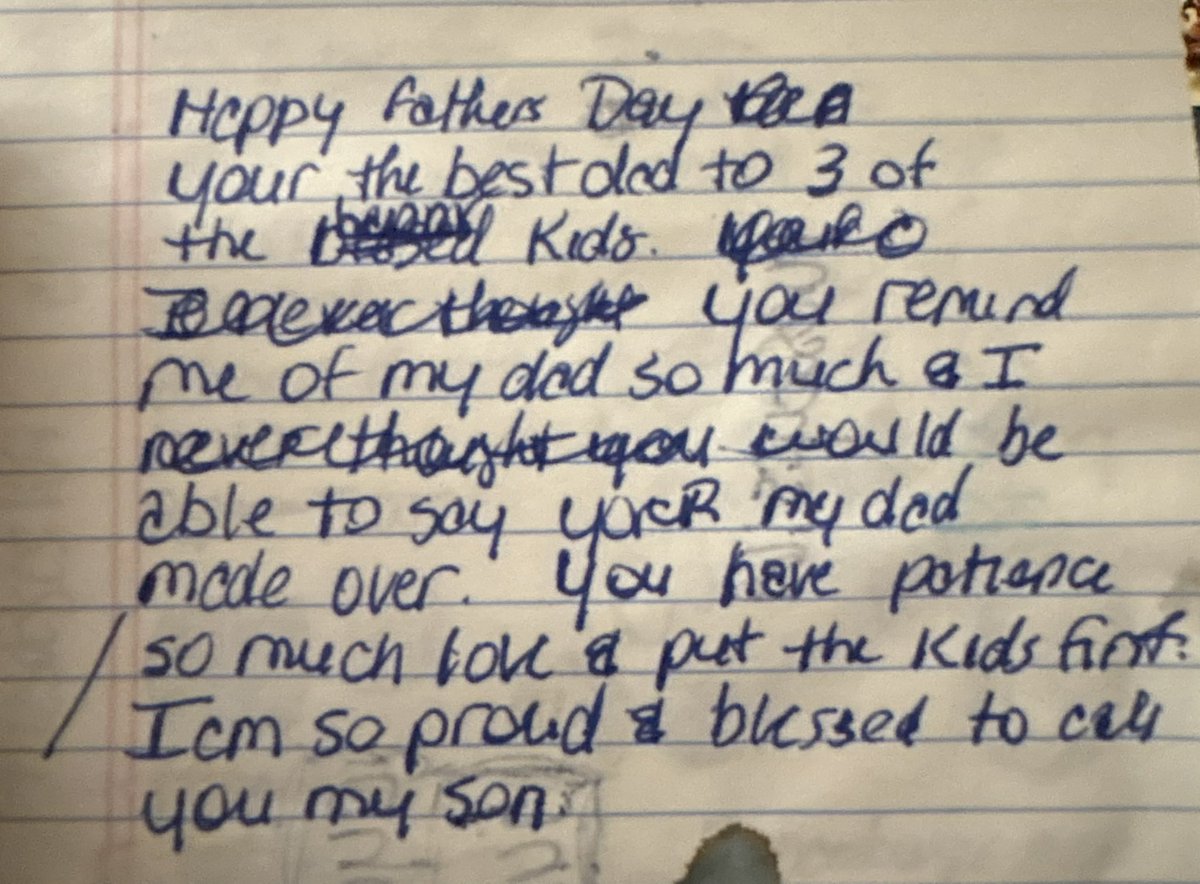 Happy Fathers Day
your the best dad to 3 of
the Kids.
thought you remind
me of my dad so much & I
never thought you would be
able to say your my dad
made over. You have patience
so much love & put the Kids first.
I am so proud & blessed to call
you my son.